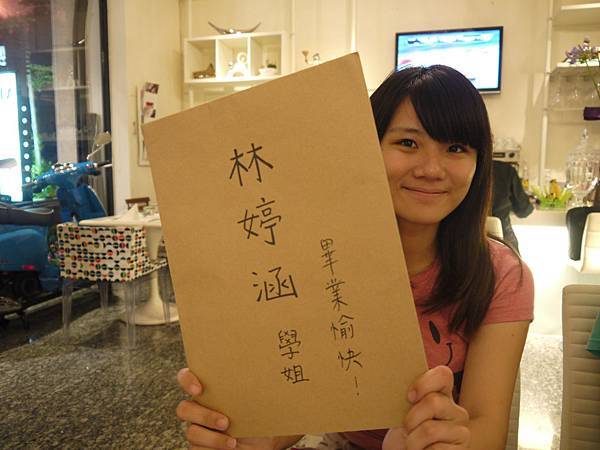 林婷涵學姐
畢業愉快！